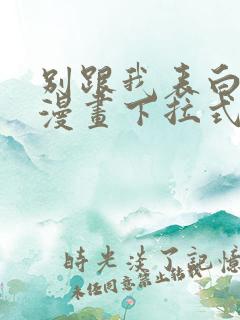 别跟我表白
漫畫下拉式
時光淡了記憶
未经同意禁止转载